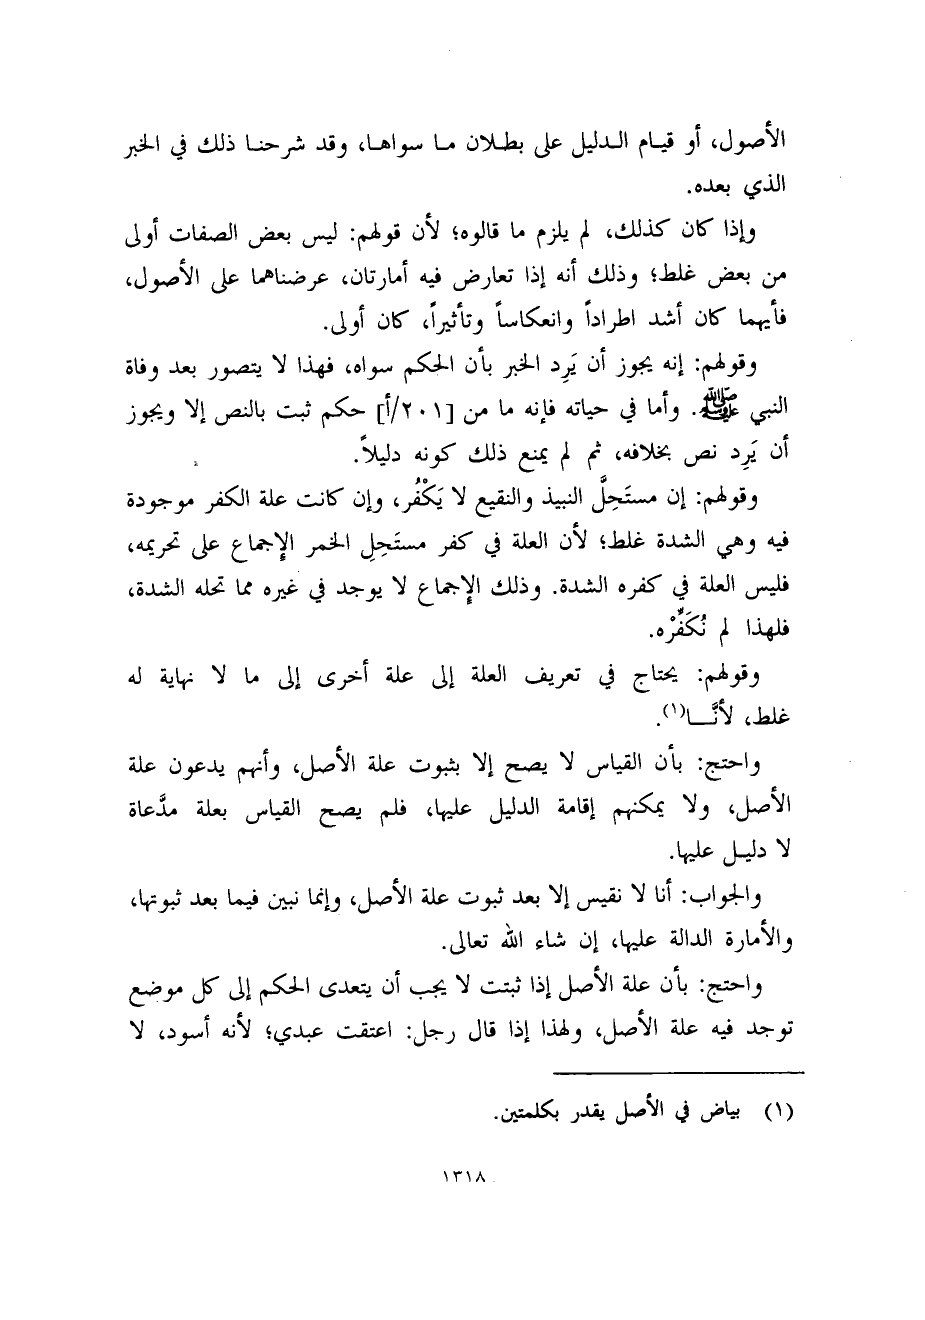 الأصول، أو قيام الدليل على بطلان ما سواها، وقد شرحنا ذلك في الخبر
الذي بعده.
وإذا كان كذلك، لم يلزم ما قالوه؛ لأن قولهم: ليس بعض الصفات أولى
من بعض غلط؛ وذلك أنه إذا تعارض فيه أمارتان، عرضناهما على الأصول،
فأيهما كان أشد اطراداً وانعكاساً وتأثيراً، كان أولى.
وقولهم: إنه يجوز أن يَرِد الخبر بأن الحكم سواه، فهذا لا يتصور بعد وفاة
النبي ﷺ. وأما في حياته فإنه ما من [٢٠١/أ] حكم ثبت بالنص إلا ويجوز
أن يَرِد نص بخلافه، ثم لم يمنع ذلك كونه دليلاً.
وقولهم: إن مستَحِلَّ النبيذ والنقيع لا يَكْفُر، وإن كانت علة الكفر موجودة
فيه وهي الشدة غلط؛ لأن العلة في كفر مستَحِلِ الخمر الإجماع على تحريمه،
فليس العلة في كفره الشدة. وذلك الإجماع لا يوجد في غيره مما تحله الشدة،
فلهذا لم نُكَفِّرْه.
وقولهم: يحتاج في تعريف العلة إلى علة أخرى إلى ما لا نهاية له
غلط، لأنَّــا(١).
واحتج: بأن القياس لا يصح إلا بثبوت علة الأصل، وأنهم يدعون علة
الأصل، ولا يمكنهم إقامة الدليل عليها، فلم يصح القياس بعلة مدَّعاة
لا دليل عليها.
والجواب: أنا لا نقيس إلا بعد ثبوت علة الأصل، وإنما نبين فيما بعد ثبوتها،
والأمارة الدالة عليها، إن شاء الله تعالى.
واحتج: بأن علة الأصل إذا ثبتت لا يجب أن يتعدى الحكم إلى كل موضع
توجد فيه علة الأصل، ولهذا إذا قال رجل: اعتقت عبدي؛ لأنه أسود، لا
(١) بياض في الأصل يقدر بكلمتين.
١٣١٨